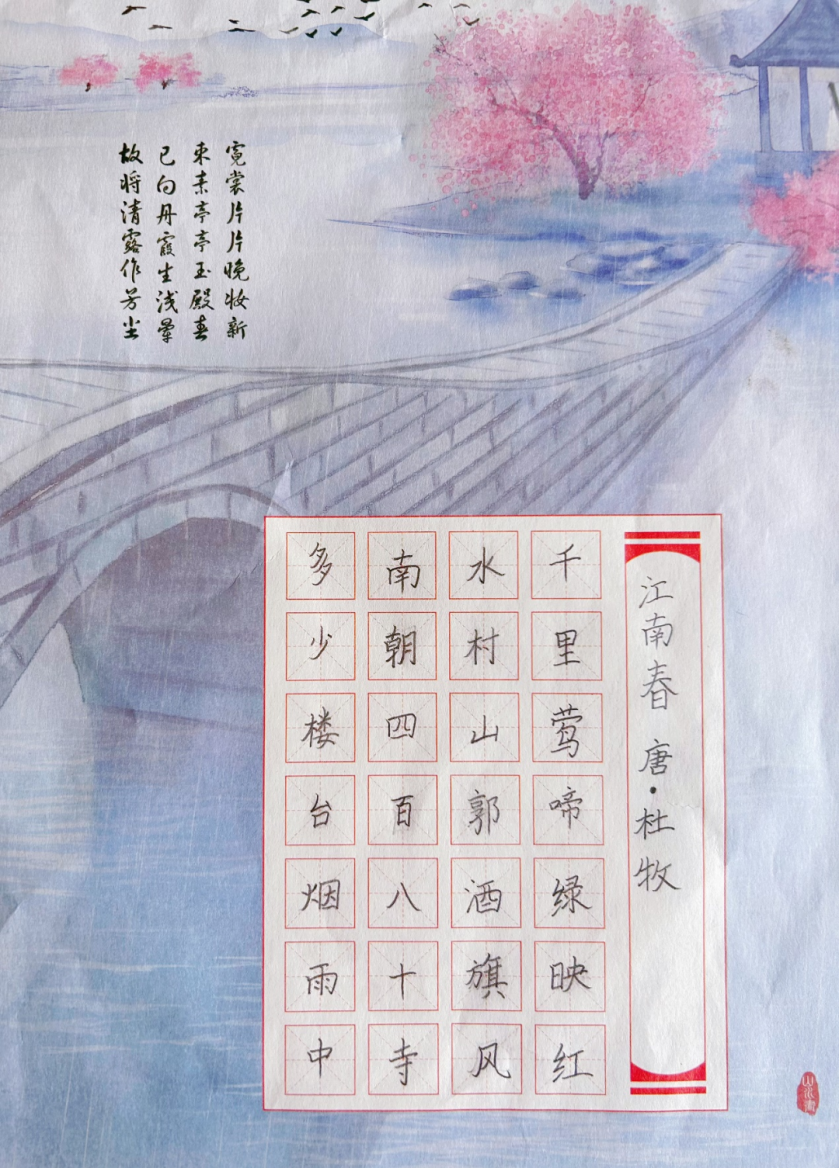 霓裳片片晚妆新
束素亭亭玉殿春
已向丹霞生浅晕
故将清露作芳尘
江南春 唐·杜牧
千里莺啼绿映红
水村山郭酒旗风
南朝四百八十寺
多少楼台烟雨中